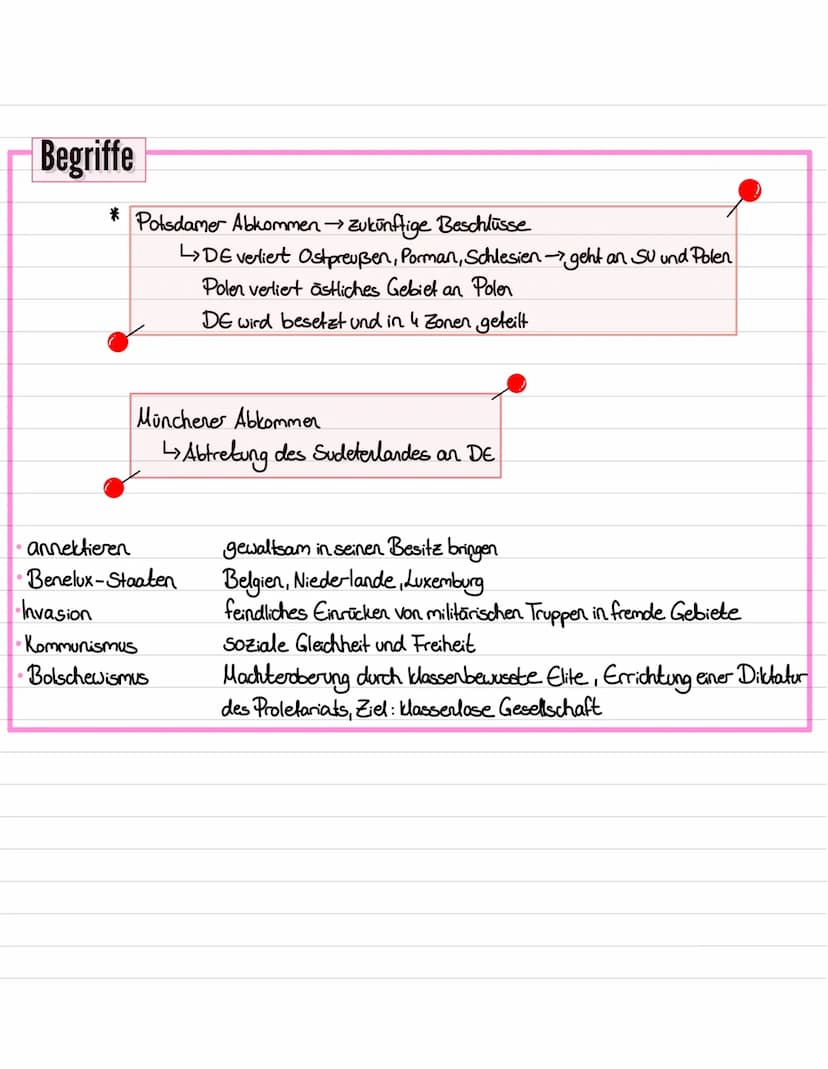 Begriffe
* Potsdamer Abkommen → zukünftige Beschlüsse
↳ DE verliert Ostpreußen, Porman, Schlesien → geht an SU und Polen
Polen verliert östliches Gebiet an Polen
DE wird besetzt und in 4 Zonen geteilt
Münchener Abkommen
↳ Abtretung des Sudetenlandes an DE
• annektieren gewaltsam in seinen Besitz bringen
• Benelux-Staaten Belgien, Niederlande, Luxemburg
• Invasion feindliches Einrücken von militärischen Truppen in fremde Gebiete
• Kommunismus soziale Gleichheit und Freiheit
• Bolschewismus Machteroberung durch klassenbewusste Elite, Errichtung einer Diktatur
des Proletariats, Ziel: klassenlose Gesellschaft